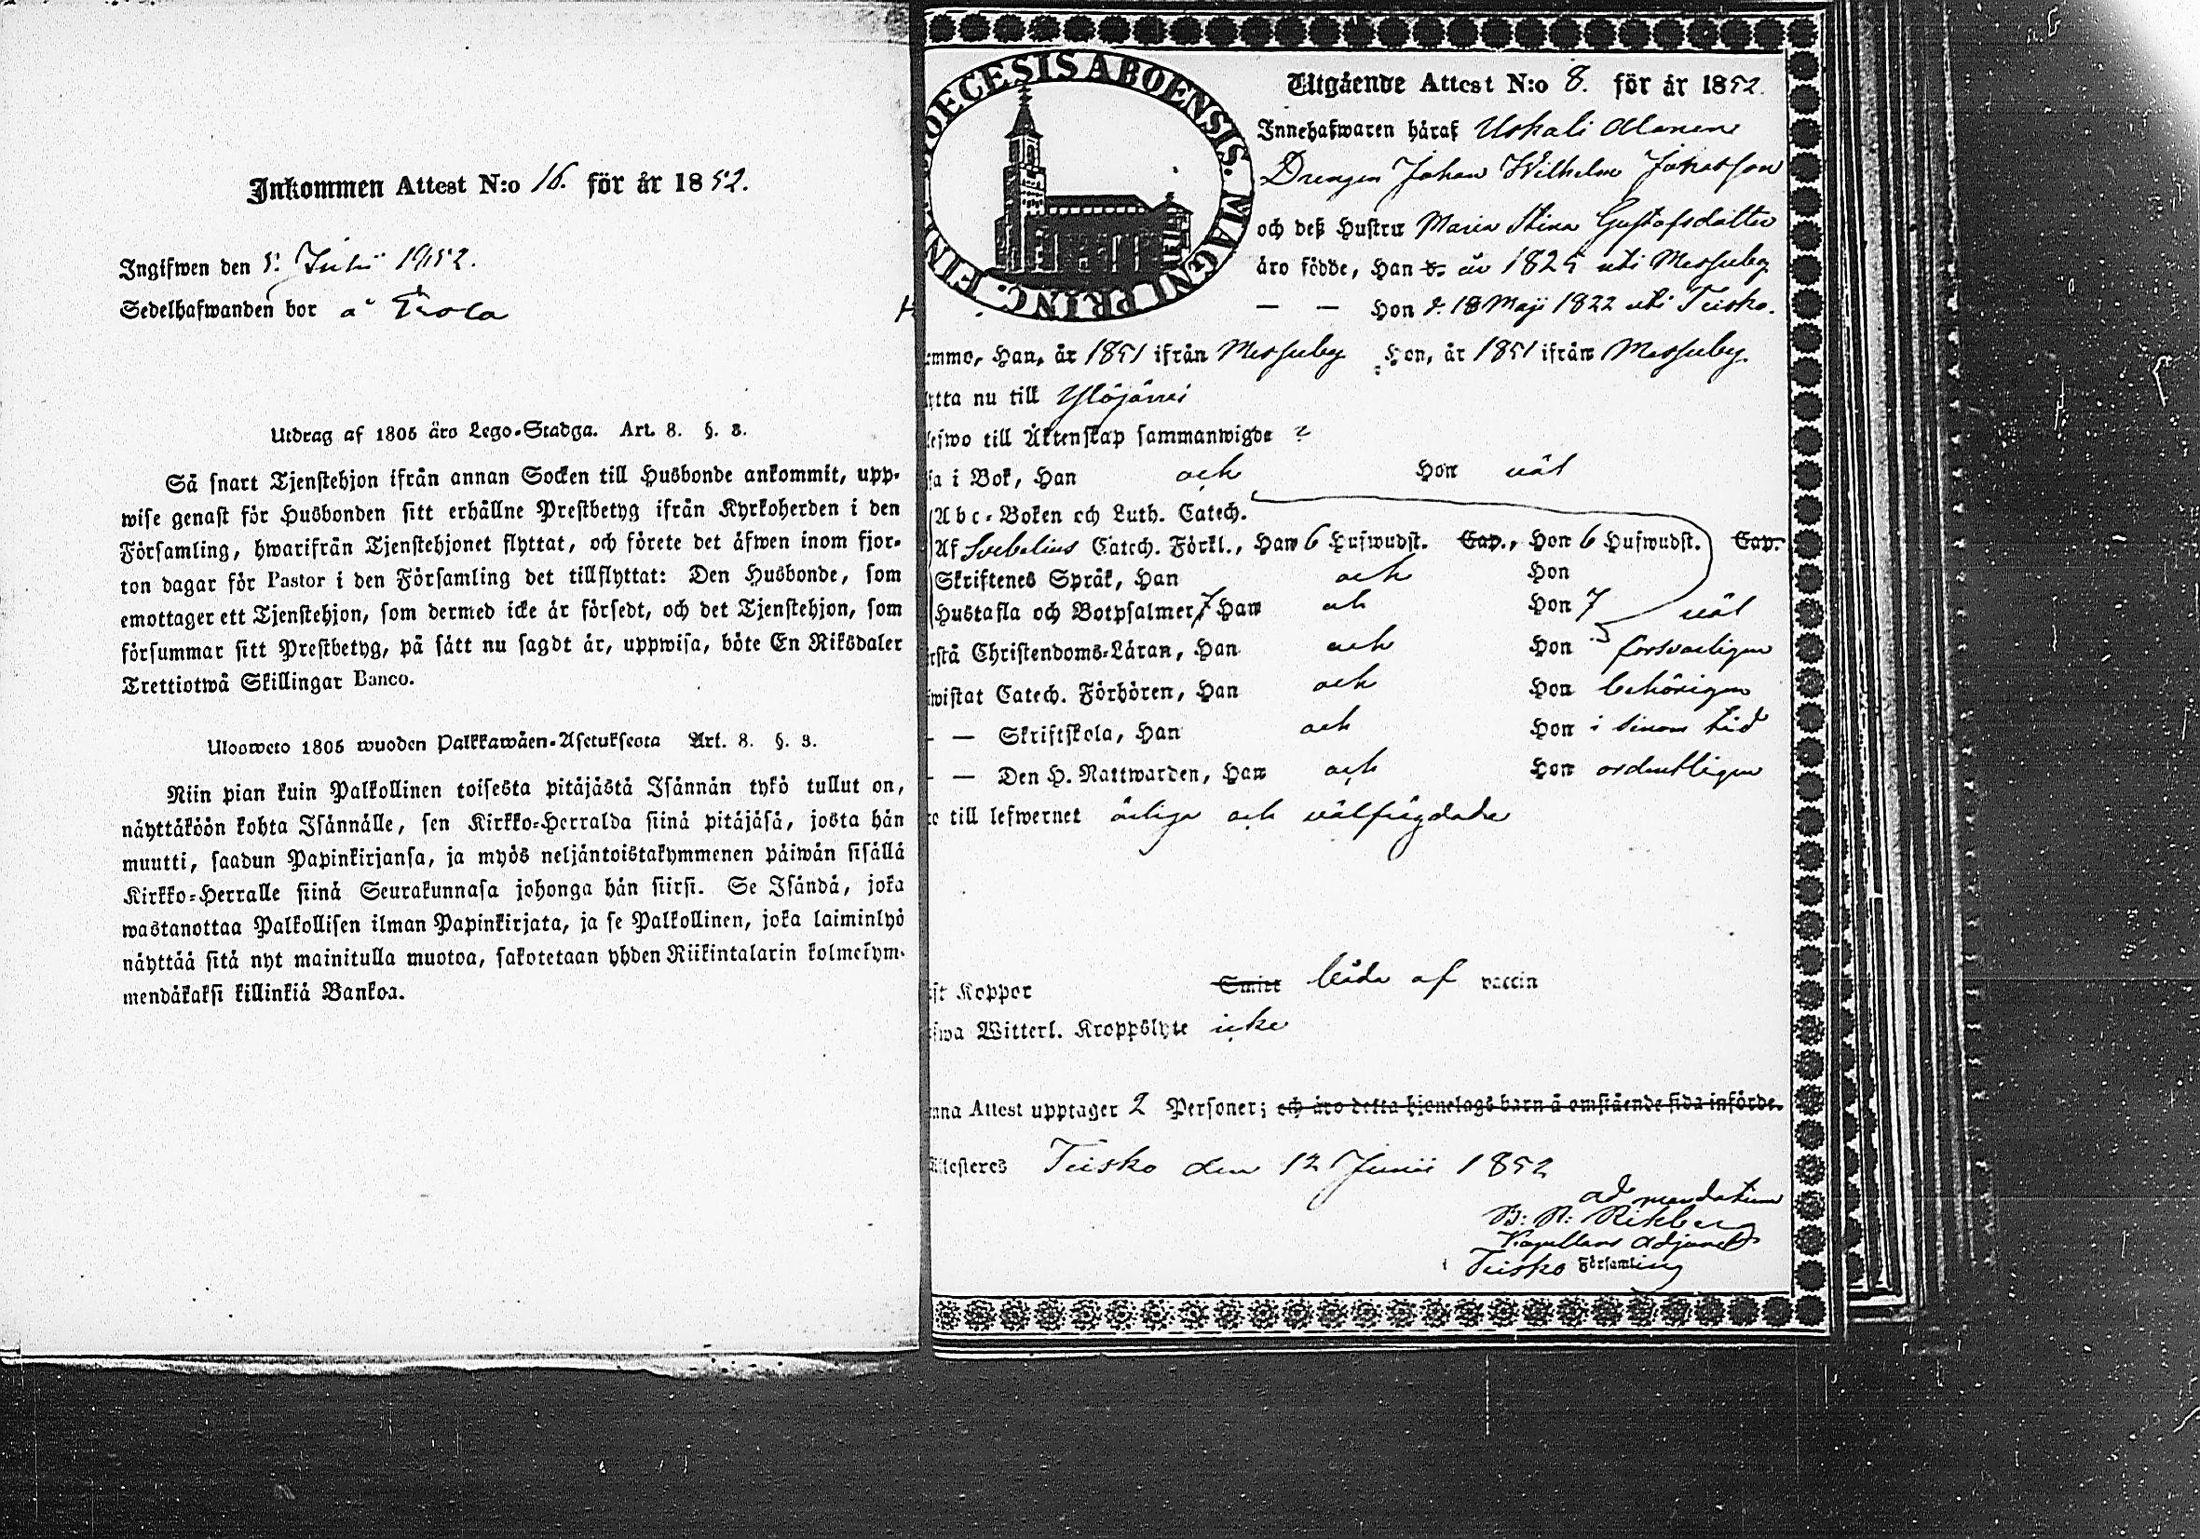 Inkommen Attest N:o 16. för år 1852.
Ingifwen den 5. Julii 1852.
Sedelhafwanden bor å Erola
Utdrag af 1805 års Lego-Stadga. Art. 8. §. 3.
Så snart Tjenstehjon ifrån annan Socken till Husbonde ankommit, upp-
wise genast för Husbonden sitt erhållne Prestbetyg ifrån Kyrkoherden i den
Församling, hwarifrån Tjenstehjonet flyttat, och förete det äfwen inom fjor-
ton dagar för Pastor i den Församling det tillflyttat: Den Husbonde, som
emottager ett Tjenstehjon, som dermed icke är försedt, och det Tjenstehjon, som
försummar sitt Prestbetyg, på sätt nu sagdt är, uppwisa, böte En Riksdaler
Trettiotwå Skillingar Banco.
Ulosweto 1805 wuoden Palkkawäen-Asetuksesta Art. 8. §. 3.
Niin pian kuin Palkollinen toisesta pitäjästä Isännän tykö tullut on,
näyttäköön kohta Isännälle, sen Kirkko-Herralda siinä pitäjäsä, josta hän
muutti, saadun Papinkirjansa, ja myös neljäntoistakymmenen päiwän sisällä
Kirkko-Herralle siinä Seurakunnasa johonga hän siirsi. Se Isändä, joka
wastanottaa Palkollisen ilman Papinkirjata, ja se Palkollinen, joka laiminlyö
näyttää sitä nyt mainitulla muotoa, sakotetaan yhden Riikintalarin kolmekym-
mendäkaksi killinkiä Bankoa.
OECESIS ABOENSIS. MAGNI PRINC. FINN
Utgående Attest N:o 8. för år 1852.
Innehafwaren häraf Uskali Alanen
Drengen Johan Wilhelm Jakobsson
och deß Hustru Maria Stina Gustafsdotter
äro födde, Han d. år 1825 uti Messuby
— — Hon d. 18 Maji 1822 uti Teisko.
mmo, Han, år 1851 ifrån Messuby Hon, år 1851 ifrån Messuby.
ytta nu till Ylöjärvi
lefwo till Äktenskap sammanwigde ?
sa i Bok, Han och Hon väl
Abc-Boken och Luth. Catech.
Af Svebelius Catech. Förkl., Han 6 Hufwudst. Cap., Hon 6 Hufwudst. Cap.
Skriftenes Språk, Han och Hon
Hustafla och Botpsalmer, 7 Han och Hon 7 väl
rstå Christendoms-Läran, Han och Hon försvarligen
wistat Catech. Förhören, Han och Hon behörigen
— — Skriftskola, Han och Hon i sinom tid
— — Den H. Nattwarden, Han och Hon ordentligen
till lefwernet ärliga och välfrägdade
st Koppor Smitt båda af vaccin
fwa Witterl. Kroppslyte icke
nna Attest upptager 2 Personer; och äro detta hjonelags barn å omstående sida införde.
Attesteres Teisko den 12 Junii 1852
ad mandatum
B: R: Rikberg
Kapellans Adjunct
i Teisko Församling